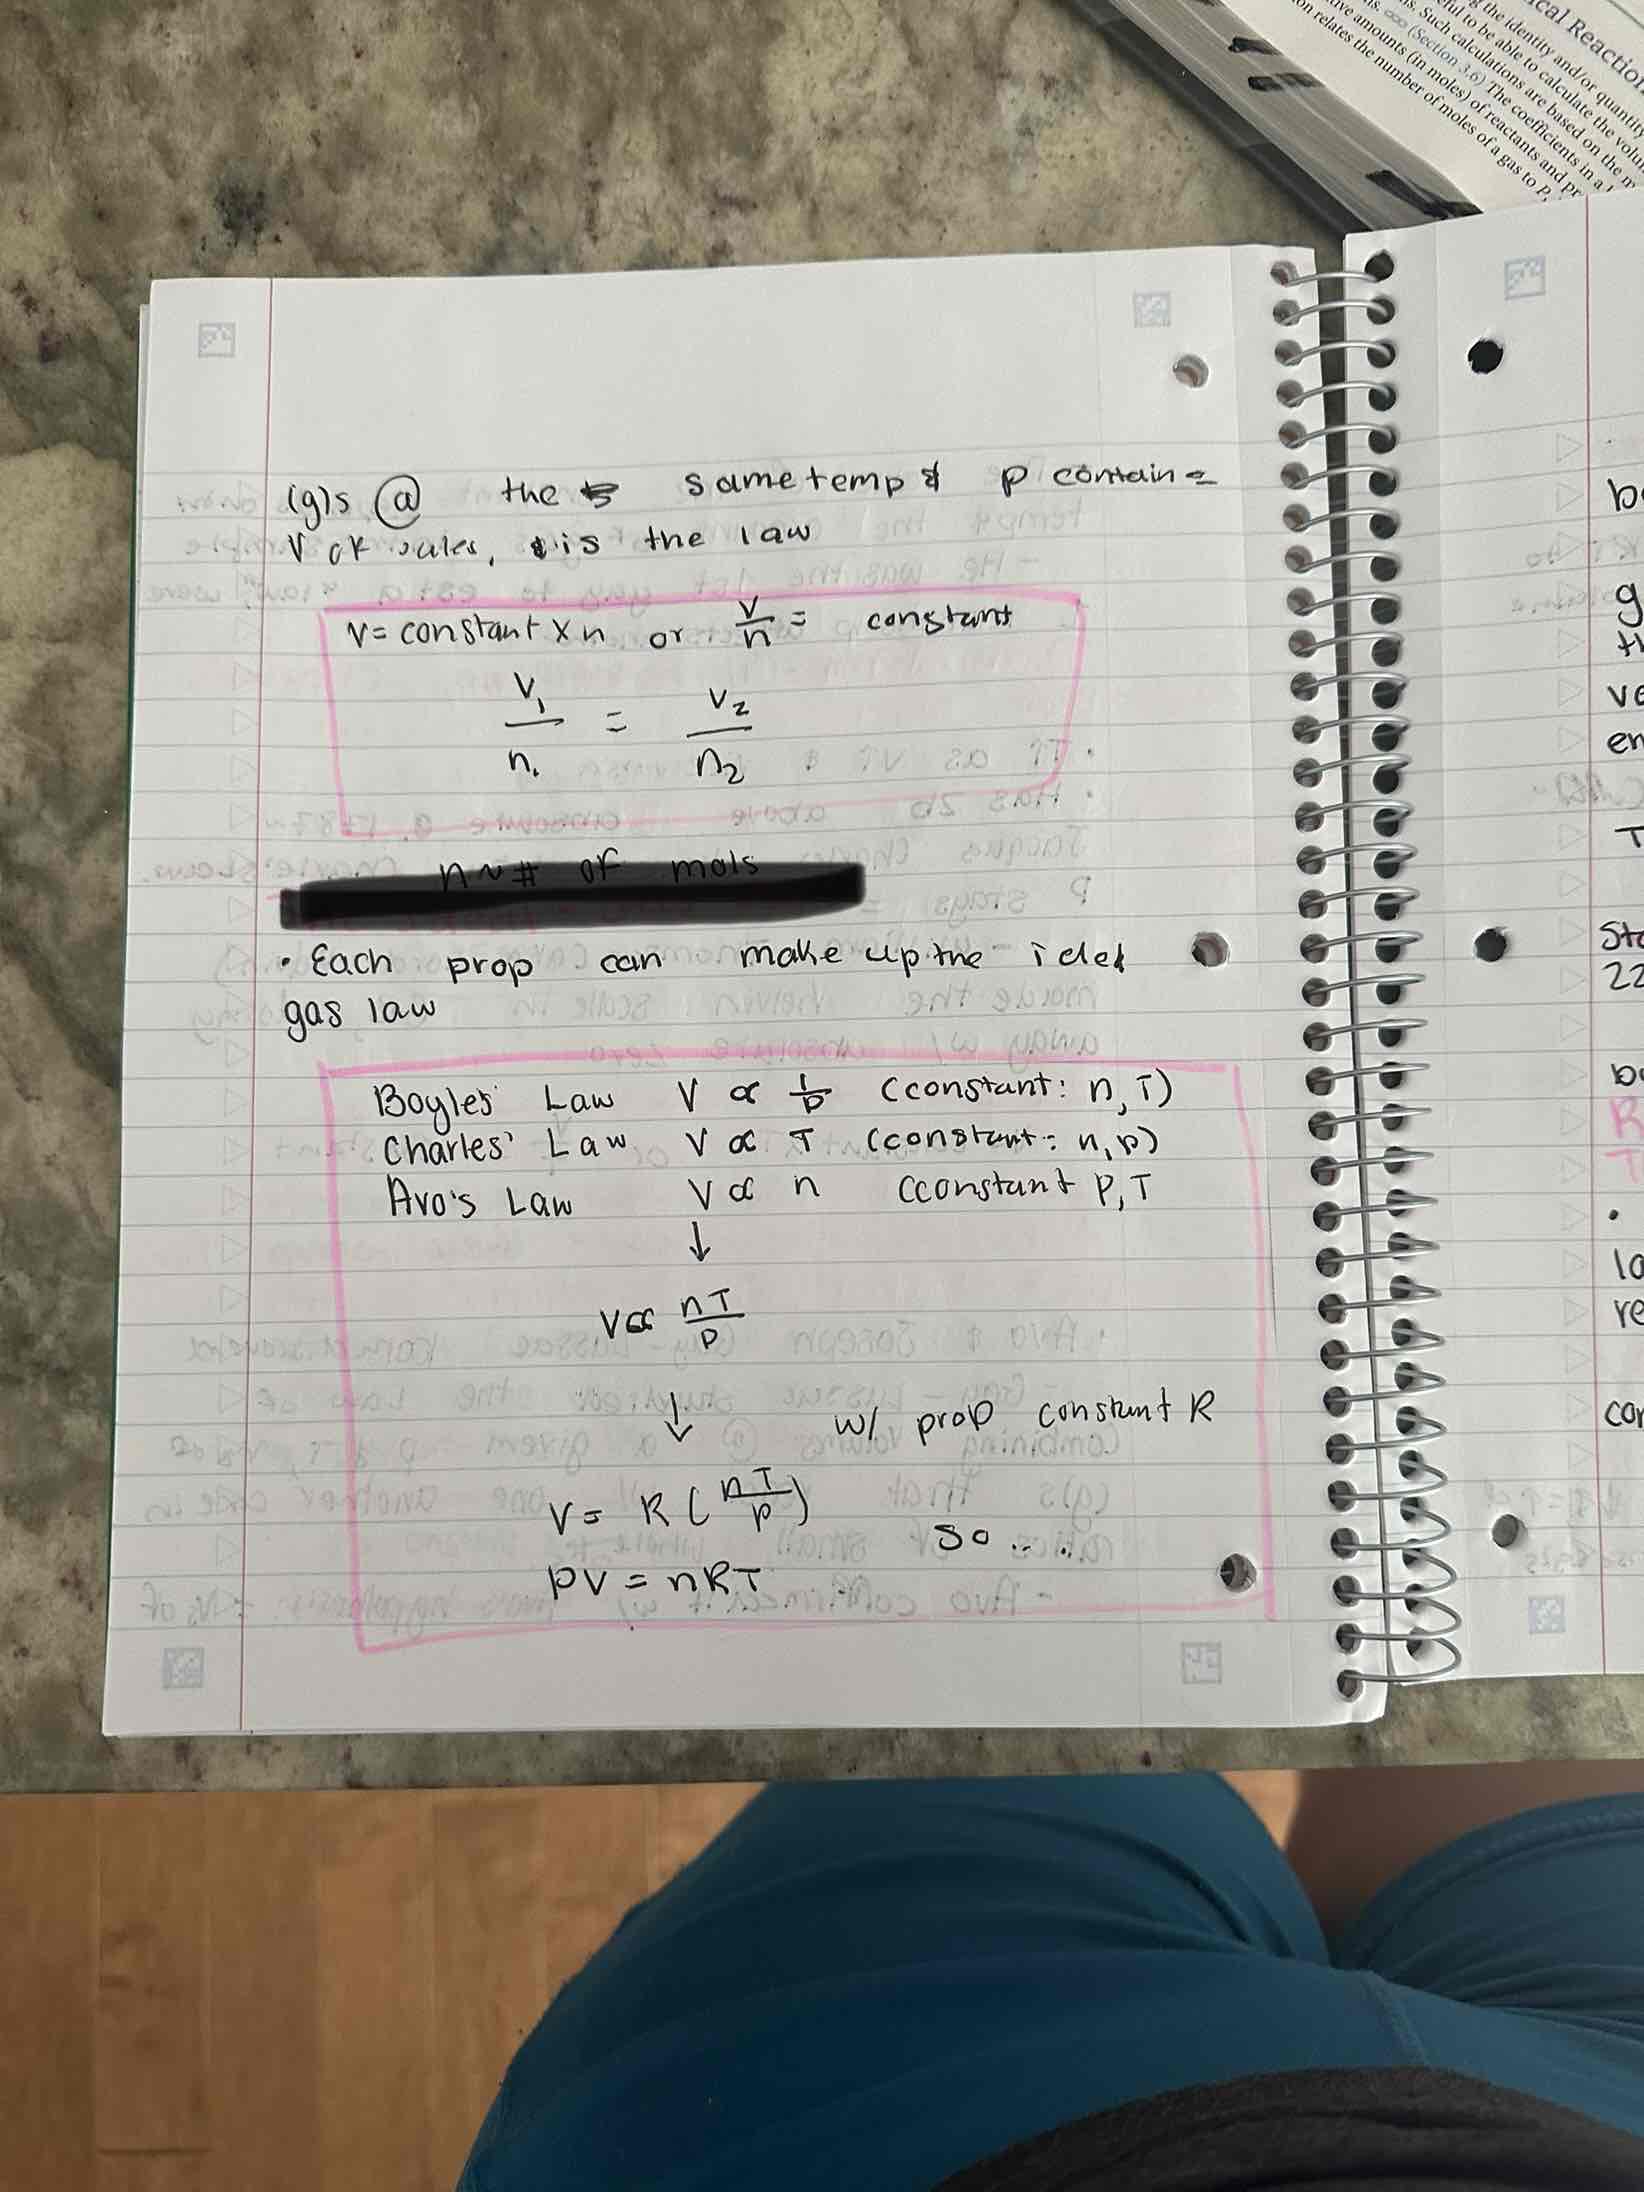 ical Reaction
g the identity and/or quantity
eful to be able to calculate the volu
ns. Such calculations are based on the m
(Section 3.6) The coefficients in a
ive amounts (in moles) of reactants and pr
on relates the number of moles of a gas to P,
(g)s @ the same temp & p contain =
V of, is the law
V = constant x n or V/n = constant
V₁ / n₁ = V₂ / n₂
n ~ # of mols
• Each prop can make up the idel
gas law
Boyles' Law V ∝ 1/p (constant: n, T)
Charles' Law V ∝ T (constant: n, p)
Avo's Law V ∝ n (constant P, T
↓
V ∝ nT/p
↓ w/ prop constant R
V = R (nT/p)
so ...
pV = nRT
b
g
th
ve
en
T
Sta
22
bo
R
T
•
la
re
con